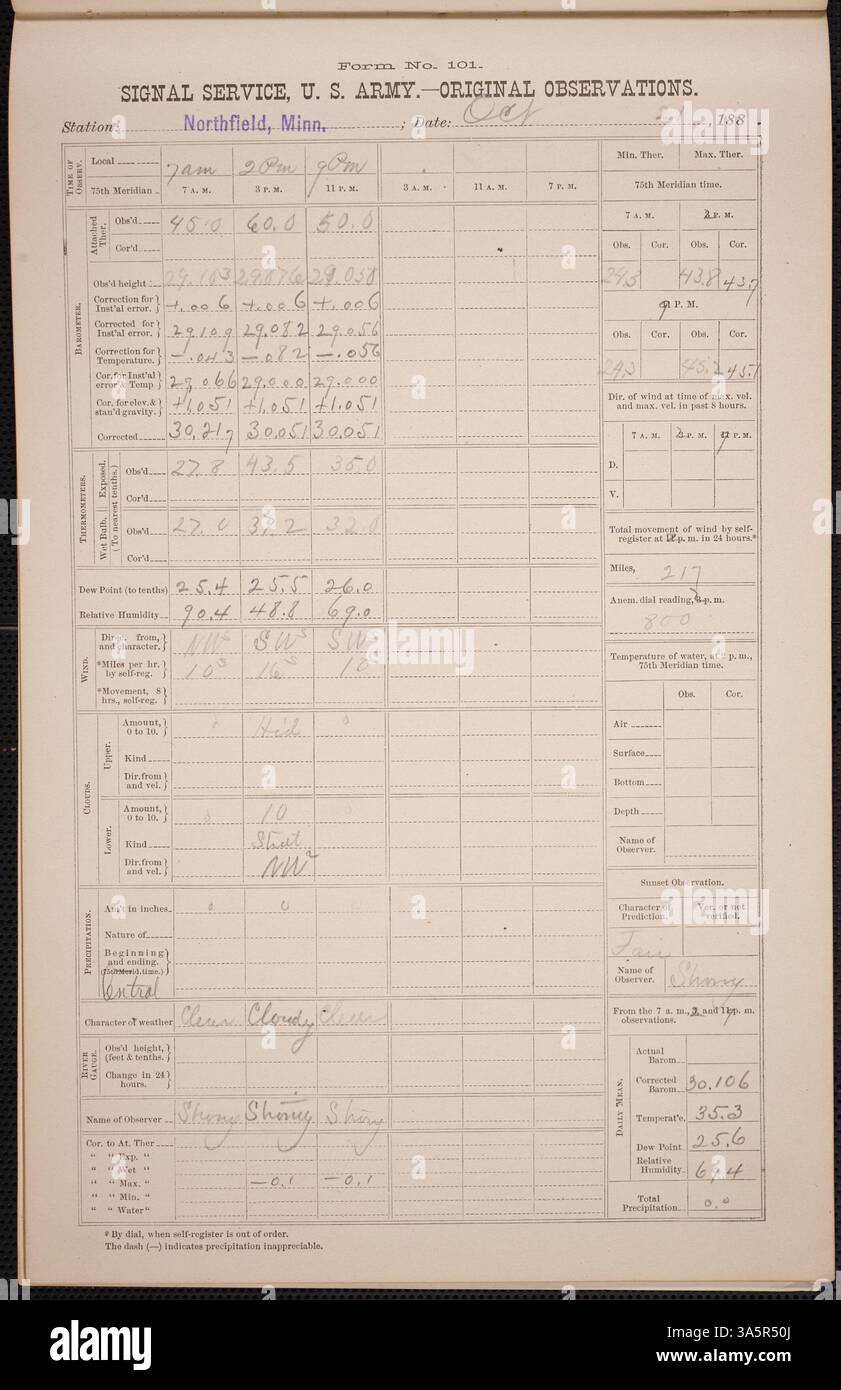 Form No. 101.
SIGNAL SERVICE, U. S. ARMY.—ORIGINAL OBSERVATIONS.
Station: Northfield, Minn. ; Date: Oct , 188 .
TIME OF OBSERV. Local 7 am 2 Pm 9 Pm
75th Meridian 7 A. M. 3 P. M. 11 P. M. 3 A. M. 11 A. M. 7 P. M.
BAROMETER.
Attached Ther. Obs'd 45.0 60.0 50.0
Cor'd
Obs'd height 29.103 29.076 29.050
Correction for Inst'al error. +.006 +.006 +.006
Corrected for Inst'al error. 29.109 29.082 29.056
Correction for Temperature. —.043 —.082 —.056
Cor. for Inst'al error & Temp 29.066 29.000 29.000
Cor. for elev. & stan'd gravity. +1.051 +1.051 +1.051
Corrected 30.217 30.051 30.051
THERMOMETERS.
Exposed. (To nearest tenths.) Obs'd 27.8 43.5 35.0
Cor'd
Wet Bulb. Obs'd 27.0 37.2 32.0
Cor'd
Dew Point (to tenths) 25.4 25.5 26.0
Relative Humidity 90.4 48.8 69.0
WIND.
Direc. from, and character. NW s SW s SW
*Miles per hr. by self-reg. 10 s 16 s 10
*Movement, 8 hrs., self-reg.
CLOUDS.
Upper. Amount, 0 to 10. 0 Hid 0
Kind
Dir. from and vel.
Lower. Amount, 0 to 10. 0 10
Kind
Dir. from and vel. NW 2
PRECIPITATION.
Am't in inches 0 0
Nature of
Beginning and ending. (75th Merid. time.)
Central
Character of weather Clear Cloudy Clear
RIVER GAUGE.
Obs'd height, (feet & tenths.)
Change in 24 hours.
Name of Observer
Cor. to At. Ther
" " Exp. "
" " Wet "
" " Max. " —0.1 —0.1
" " Min. "
" " Water "
* By dial, when self-register is out of order.
The dash (—) indicates precipitation inappreciable.
Min. Ther. Max. Ther.
75th Meridian time.
7 A. M. P. M.
Obs. Cor. Obs. Cor.
24.3 43.8 43.7
9 P. M.
Obs. Cor. Obs. Cor.
24.3 45.2 45.1
Dir. of wind at time of max. vel. and max. vel. in past 8 hours.
7 A. M. P. M. P. M.
D.
V.
Total movement of wind by self-register at p. m. in 24 hours.*
Miles, 217
Anem. dial reading, p. m.
800
Temperature of water, at p. m., 75th Meridian time.
Obs. Cor.
Air
Surface
Bottom
Depth
Name of Observer.
Sunset Observation.
Character of Prediction. Ver. or not verified.
Fair
Name of Observer.
From the 7 a. m., and p. m. observations.
DAILY MEAN.
Actual Barom
Corrected Barom 30.106
Temperat'e 35.3
Dew Point 25.6
Relative Humidity 69.4
Total Precipitation 0.0
alamy
Image ID: 3A5R50J
www.alamy.com